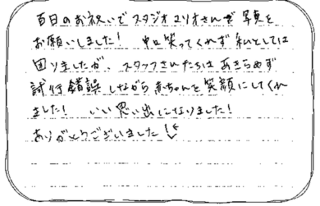 百日のお祝いでスタジオマリオさんで写真を
お願いしました! 中々笑ってくれず私としては
困りましたが、スタッフさんたちはあきらめず
試行錯誤しながら赤ちゃんを笑顔にしてくれ
ました! いい思い出になりました!
ありがとうございました!